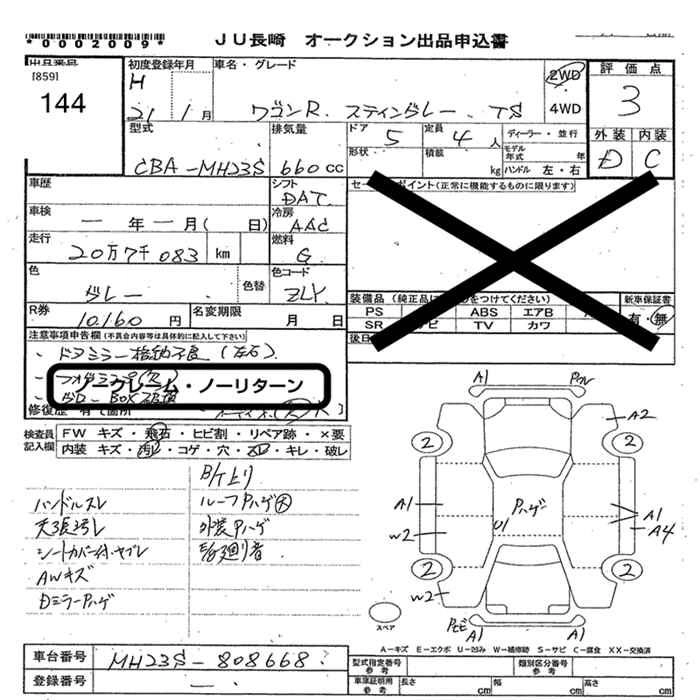 *0002009* JU長崎 オークション出品申込書
出品番号
[859]
144
初度登録年月 車名・グレード 2WD 4WD
H 21 / 1月 ワゴンR スティングレー TS
評価点
3
外装 内装
D C
型式 排気量 ドア 5 定員 4人 ディーラー・並行
CBA-MH23S 660cc 形状 積載 kg モデル年式 年
ハンドル 左・右
車歴 シフト DAT
セールスポイント(正常に機能するものに限ります)
車検 ー年ー月( 日) 冷房 AAC
走行 20万7千083 km 燃料 G
色 グレー 色替 色コード ZLY
装備品 新車保証書
PS ABS エアB 有・無
SR TV カワ
R券 10160円 名変期限 月 日
注意事項申告欄(不具合内容等は具体的に記入して下さい)
・ドアミラー格納不良(左右)
ノークレーム・ノーリターン
検査員記入欄 FW キズ・飛石・ヒビ割・リペア跡・×要
内装 キズ・汚れ・コゲ・穴・ ・キレ・破レ
ハンドルスレ
ルーフPハゲ大
外装Pハゲ
シートカバー付・ヤブレ
AWキズ
DミラーPハゲ
A1
A2
2 2
A1 Pハゲ A1
W2 U1 A4
2 2
W2
A1
スペア
A-キズ E-エクボ U-凹み W-補修跡 S-サビ C-腐食 XX-交換済
車台番号 MH23S-808668
登録番号 ー
型式指定番号 参考 類別区分番号 参考
車庫証明用 参考 長さ cm 幅 cm 高さ cm